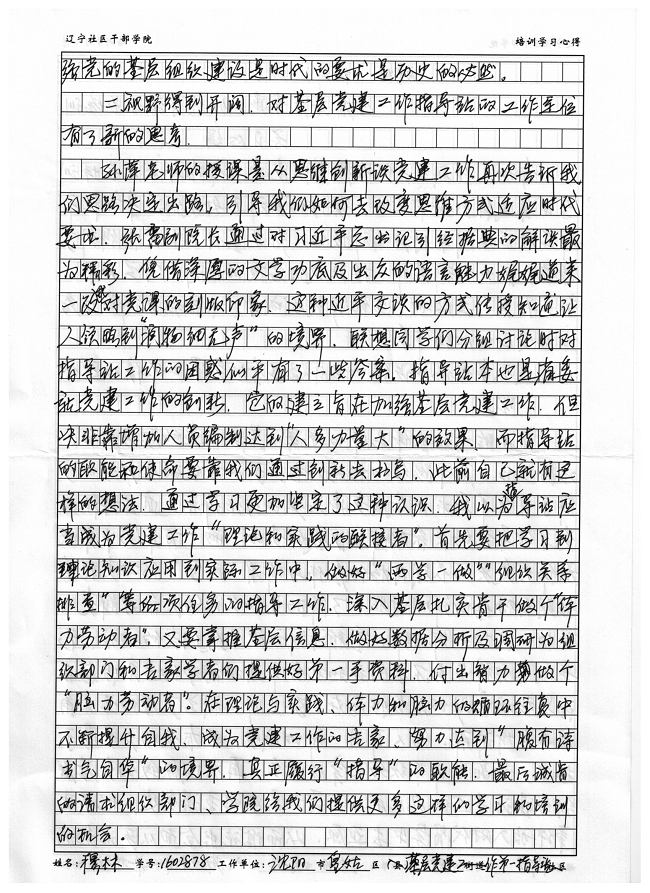 辽宁社区干部学院 培训学习心得
强党的基层组织建设是时代的要求是历史的必然。
三视野得到开阔，对基层党建工作指导站的工作定位
有了新的思考。
老师的授课是从思维创新谈党建工作再次告诉我
们思路决定出路，引导我们如何去改变思维方式适应时代
要求。院长通过对习近平总书记引经据典的解读最
为精彩，凭借深厚的文学功底及出众的语言魅力娓娓道来
一改对党课的刻板印象，这种近乎交谈的方式传授知识让
人领略到“润物细无声”的境界，联想同学们分组讨论时对
指导站工作的困惑似乎有了一些答案。指导站本也是省委
党建工作的创新，它的建立旨在加强基层党建工作，但
决非靠增加人员编制达到“人多力量大”的效果，而指导站
的职能和使命要靠我们通过创新去书写，此前自己就有这
样的想法，通过学习更加坚定了这种认识，我认为指导站应
当成为党建工作“理论和实践的联接者”。首先要把学习到
理论知识应用到实际工作中，做好“两学一做”“组织关系
排查”等各项任务的指导工作，深入基层扎实肯干做个“体
力劳动者”，又要掌握基层信息，做好数据分析及调研为组
织部门和专家学者们提供好第一手资料，付出智力做个
“脑力劳动者”。在理论与实践、体力和脑力的循环往复中
不断提升自我，成为党建工作的专家，努力达到“腹有诗
书气自华”的境界，真正履行“指导”的职能，最后诚肯
的请求组织部门、学院给我们提供更多这样的学习和培训
的机会。
姓名：穆林 学号：1602878 工作单位：沈阳 市 皇姑 区 县 基层党建工作第一指导站 区